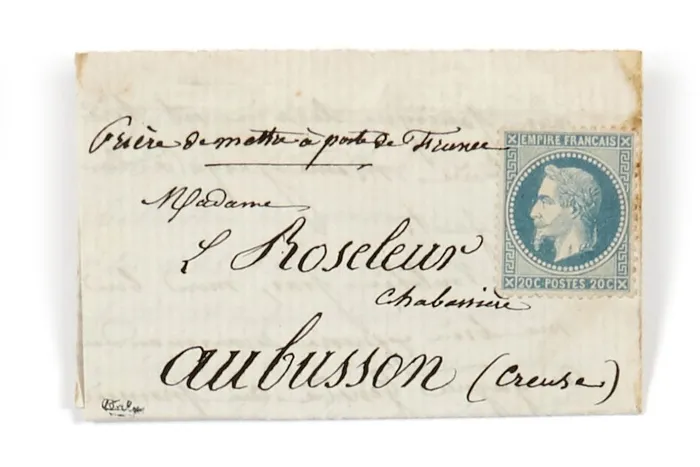 Prière de mettre à poste de France
EMPIRE FRANCAIS
Madame
L Roseleur
Chabassière
20C POSTES 20C
aubusson (Creuse)